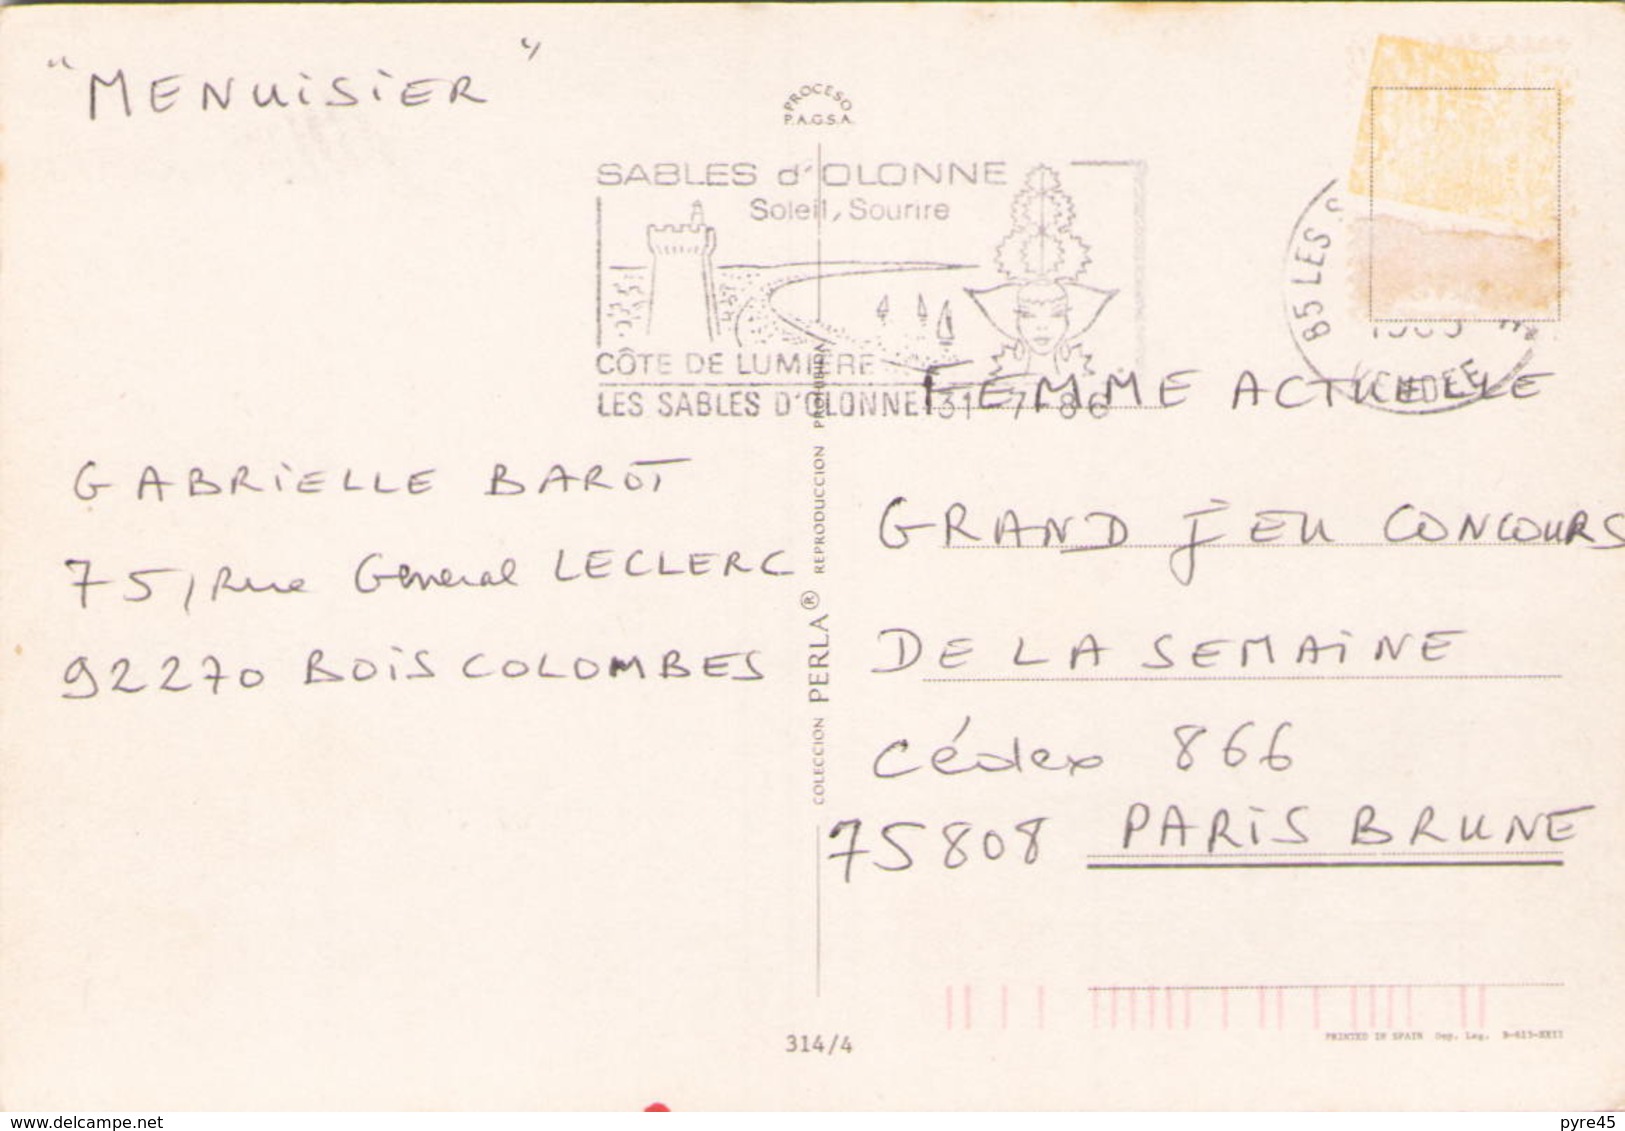 "MENUISIER"
PROCESO
P.A.G.S.A.
SABLES d'OLONNE
Soleil, Sourire
CÔTE DE LUMIERE
LES SABLES D'OLONNE 31 7 86
85 LES S
VENDEE
GABRIELLE BAROT
75, Rue General LECLERC
92270 BOIS COLOMBES
COLECCION PERLA® REPRODUCCION PROHIBIDA
FEMME ACTUELLE
GRAND JEU CONCOURS
DE LA SEMAINE
Cédex 866
75808 PARIS BRUNE
314/4
PRINTED IN SPAIN Dep. Leg.
www.delcampe.net
pyre45